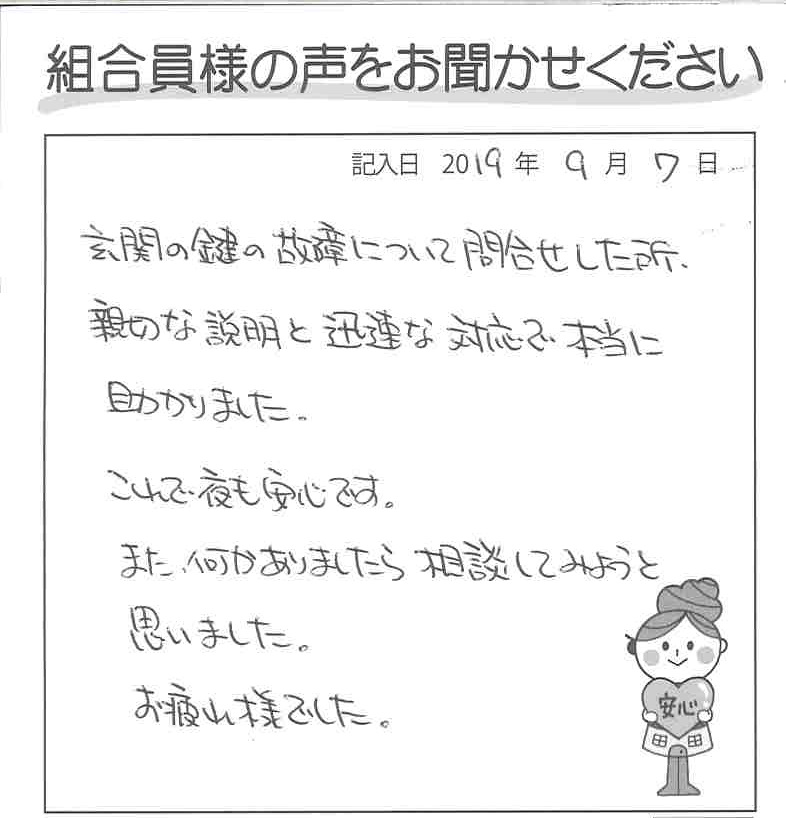 組合員様の声をお聞かせください
記入日 2019年 9月 7日
玄関の鍵の故障について問合せした所、
親切な説明と迅速な対応で本当に
助かりました。
これで夜も安心です。
また、何かありましたら相談してみようと
思いました。
お疲れ様でした。
安心